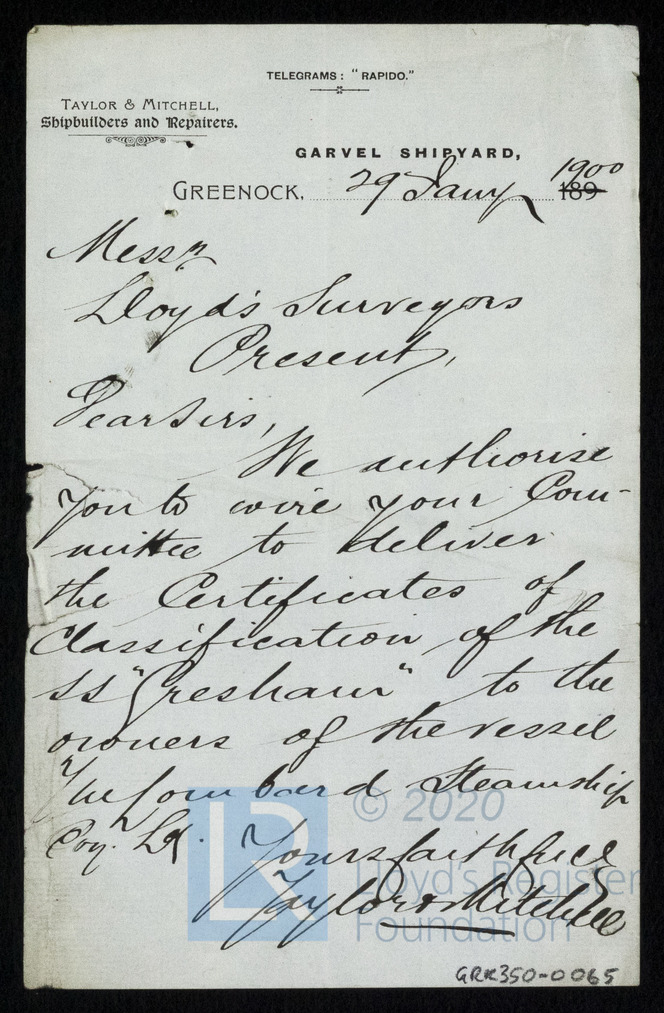 TELEGRAMS: "RAPIDO."
TAYLOR & MITCHELL,
Shipbuilders and Repairers.
GARVEL SHIPYARD,
GREENOCK, 29 Jany 1900 189
Messrs
Lloyd's Surveyors
Present,
Dear Sirs,
We authorise
you to wire your Com-
mittee to deliver
the Certificates of
Classification of the
SS "Gresham" to the
owners of the vessel
The Lombard Steamship
Coy. Ld. Yours faithfully
Taylor & Mitchell
LR © 2020
Lloyd's Register
Foundation
GRK350-0065